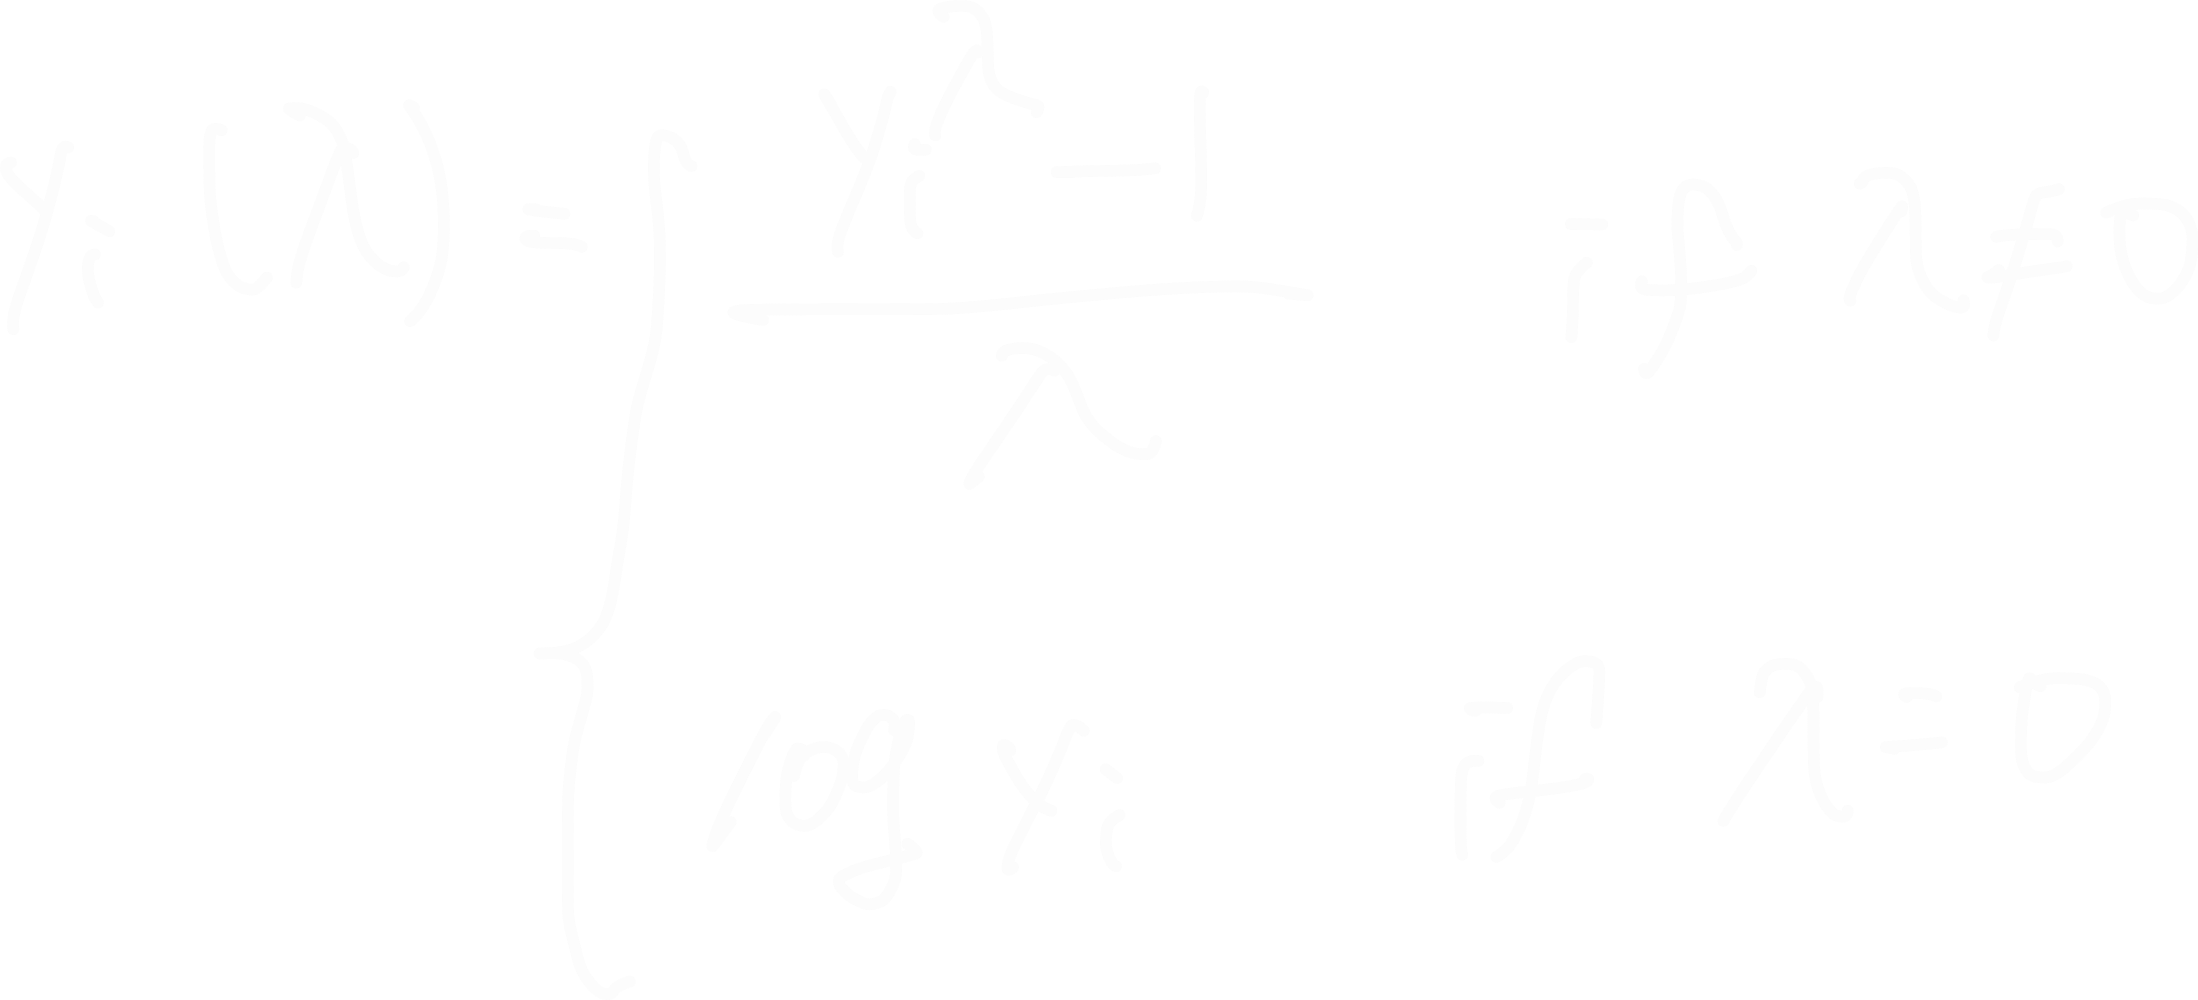 y_i(λ) = { (y_i^λ - 1) / λ if λ ≠ 0
log y_i if λ = 0